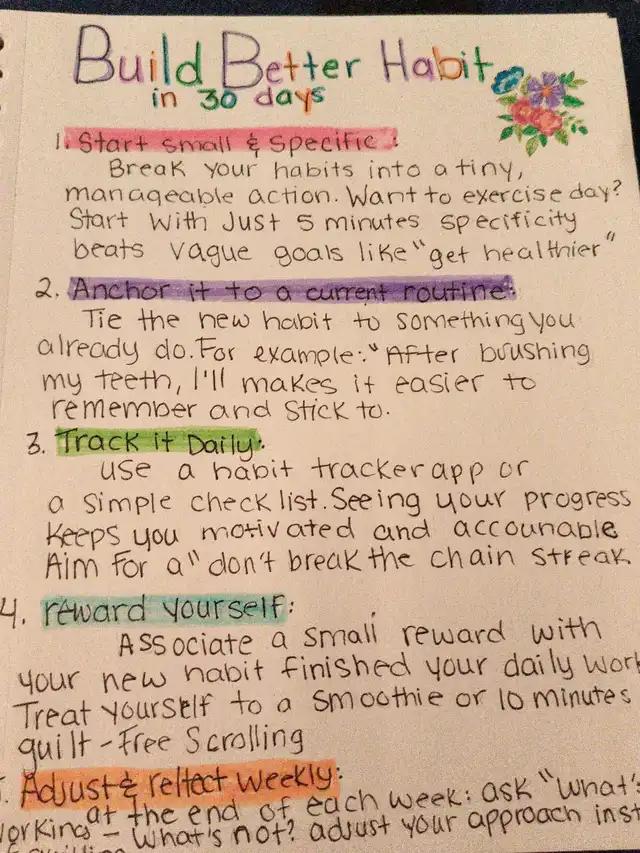 Build Better Habit
in 30 days
1. Start small & specific :
Break your habits into a tiny,
manageable action. Want to exercise day?
Start with Just 5 minutes specificity
beats vague goals like "get healthier"
2. Anchor it to a current routine:
Tie the new habit to something you
already do. For example: "After brushing
my teeth, I'll makes it easier to
remember and stick to.
3. Track it Daily:
use a habit tracker app or
a simple check list. Seeing your progress
keeps you motivated and accounable
Aim for a "don't break the chain streak
4. reward yourself:
Associate a small reward with
your new habit finished your daily work
Treat yourself to a smoothie or 10 minutes
guilt-free Scrolling
Adjust & reltect weekly:
at the end of each week: ask "What's
orking - What's not? adjust your approach inst